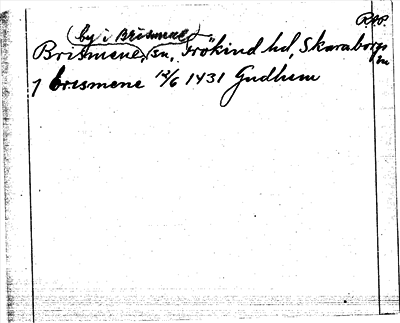 RAP.
(by i Brismene)
Brismene, sn, Frökind hd, Skaraborgs
ln
J brismene 12/6 1431 Gudhem